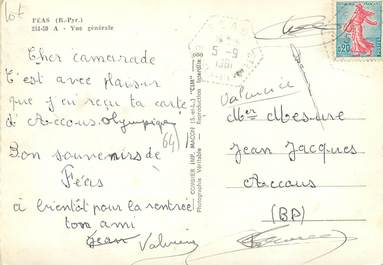 FÉAS (B.-Pyr.)
251-50 A - Vue générale
Cher camarade
C'est avec plaisir
que j'ai reçu ta carte
d'Accous.
Bon souvenirs de
Féas
à bientôt pour la rentrée
ton ami
Jean
COMBIER IMP. MACON (S.-et-L.) "CIM"
Photographie Véritable - Reproduction Interdite
5-9
1961
0,20
Mr Mesure
Jean Jacques
Accous
(BP)